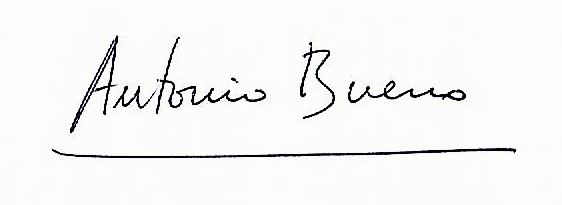 Antonio Bueno